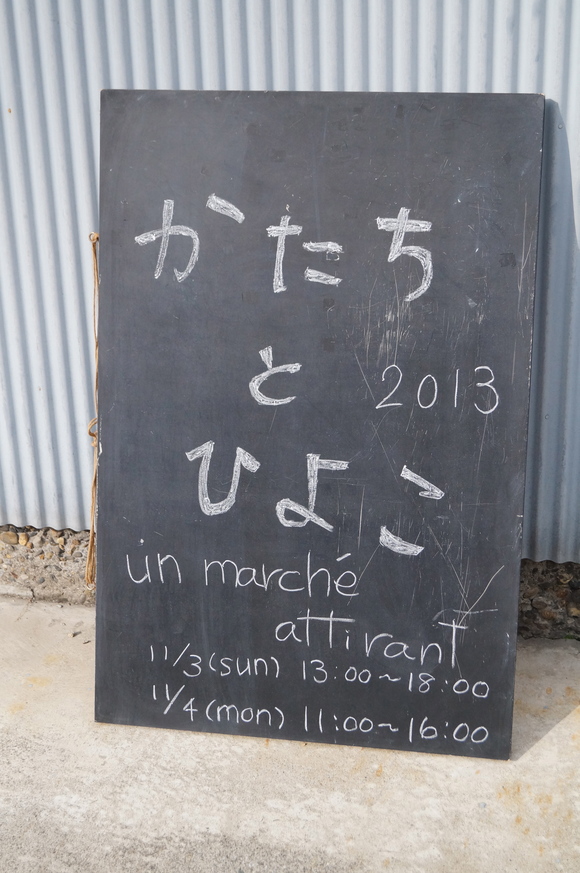 かたち
と
2013
ひよこ
un marché
attirant
11/3(sun) 13:00~18:00
11/4(mon) 11:00~16:00